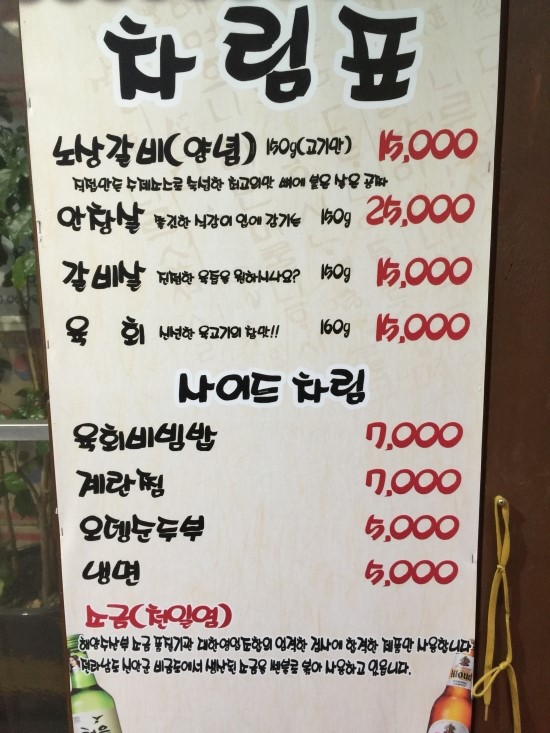 차림표
노상갈비(양념) 150g(고기만) 15,000
직접만든 수제소스로 숙성한 최고의맛 뼈에 붙은 살은 공짜
안창살 쫄깃한 식감이 입에 감기는 150g 25,000
갈비살 진정한 육즙을 원하시나요? 150g 15,000
육 회 신선한 육고기의 참맛!! 160g 15,000
사이드 차림
육회비빔밥 7,000
계란찜 7,000
오뎅순두부 5,000
냉면 5,000
소금(천일염)
해양수산부 소금 품질기관 대한염업조합의 엄격한 검사에 합격한 제품만 사용합니다
전라남도 신안군 비금도에서 생산된 소금을 사용하고 있습니다.